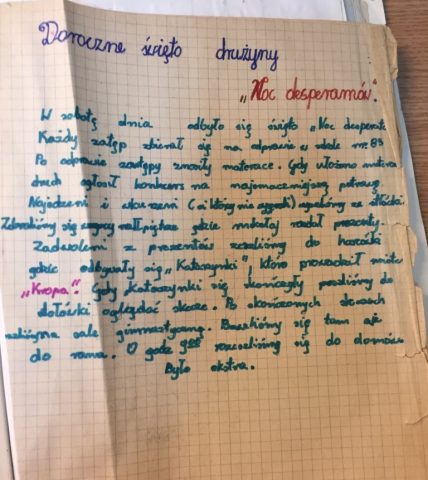 Doroczne święto drużyny
„Noc desperatów".
W sobotę dnia odbyło się święto „Noc desperat
Każdy zastęp zbierał się na odprawie w szkole nr 83
Po odprawie zastępy znosiły materace. Gdy włożono
druh ogłosił konkurs na najsmaczniejszą potrawę
Najedzeni i (ci którzy nie wygrali)
Zebraliśmy się piętrze gdzie mikołaj rozdał prezenty.
Zadowoleni z prezentów zeszliśmy do harcówki
gdzie odbywały się „Katarzynki", które prowadził
„Kropa". Gdy Katarzynki się skończyły poszliśmy do
oglądać Po skończonych
na salę gimnastyczną. Bawiliśmy się tam aż
do rana. O godz 9 rozeszliśmy się do domów
Było ekstra.